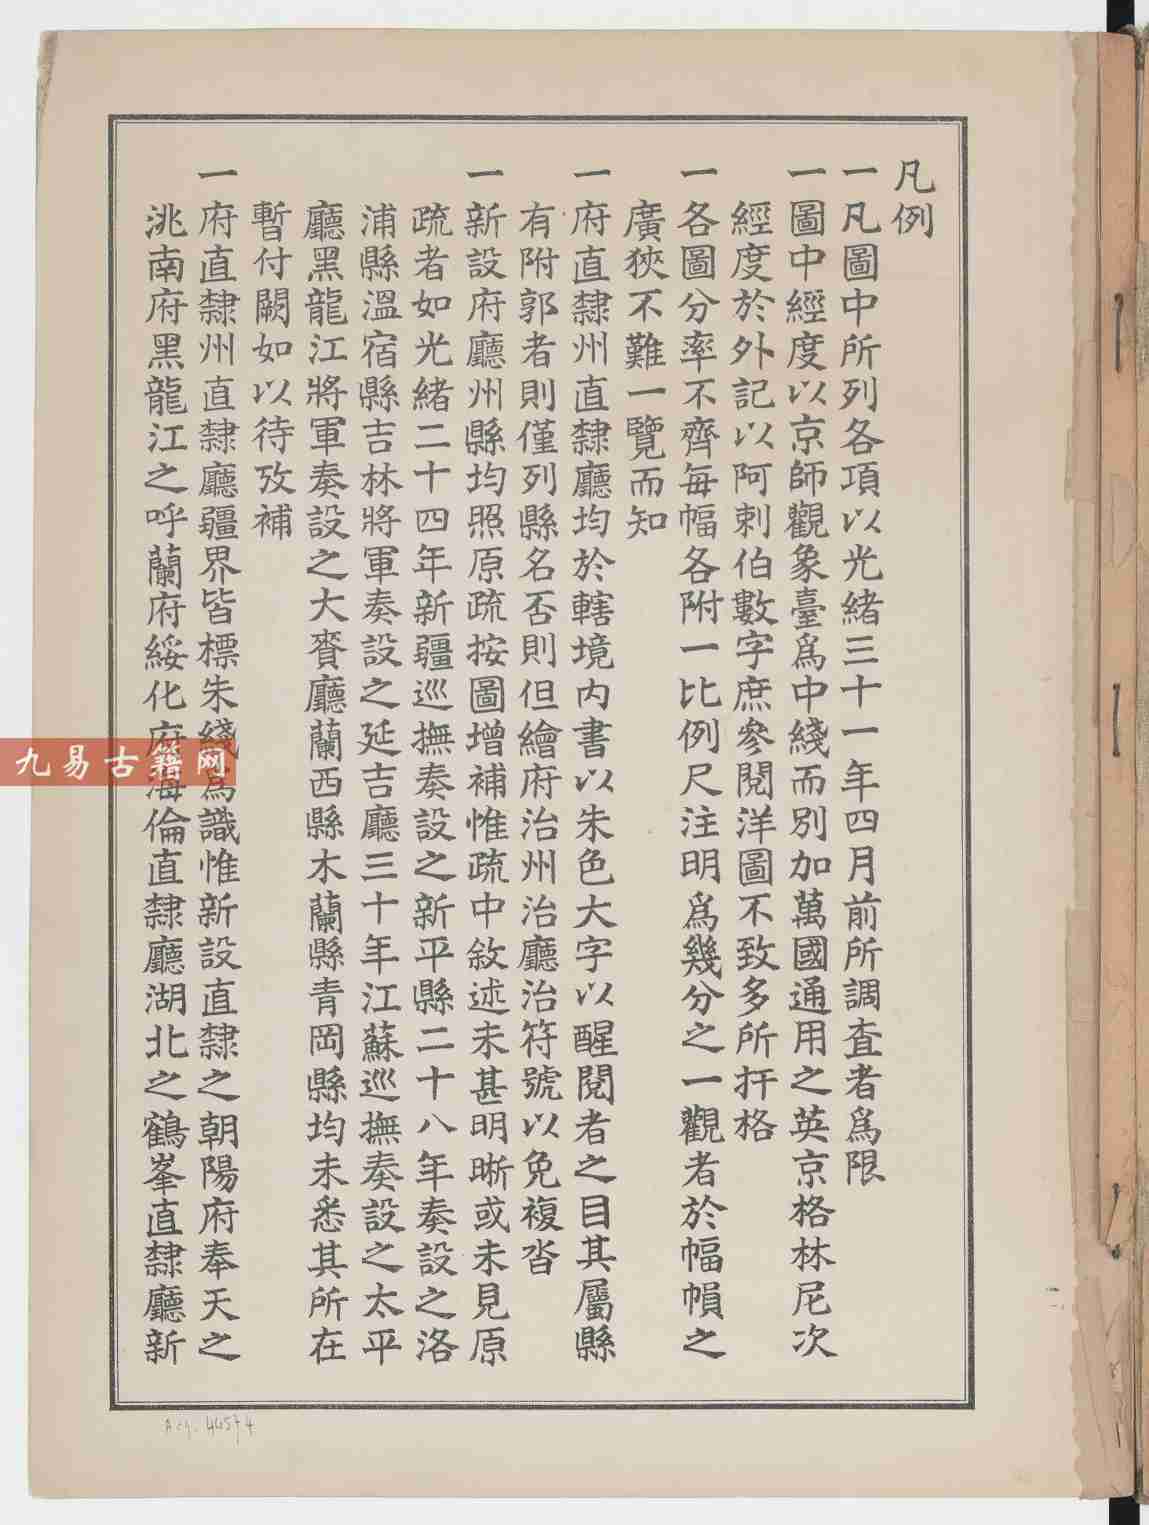 凡例
一凡圖中所列各項以光緒三十一年四月前所調查者爲限
一圖中經度以京師觀象臺爲中綫而別加萬國通用之英京格林尼次
經度於外記以阿剌伯數字庶參閱洋圖不致多所扞格
一各圖分率不齊每幅各附一比例尺注明爲幾分之一觀者於幅幀之
廣狹不難一覽而知
一府直隸州直隸廳均於轄境內書以朱色大字以醒閱者之目其屬縣
有附郭者則僅列縣名否則但繪府治州治廳治符號以免複沓
一新設府廳州縣均照原疏按圖增補惟疏中敘述未甚明晰或未見原
疏者如光緒二十四年新疆巡撫奏設之新平縣二十八年奏設之洛
浦縣溫宿縣吉林將軍奏設之延吉廳三十年江蘇巡撫奏設之太平
廳黑龍江將軍奏設之大賚廳蘭西縣木蘭縣青岡縣均未悉其所在
暫付闕如以待攷補
一府直隸州直隸廳疆界皆標朱綫爲識惟新設直隸之朝陽府奉天之
洮南府黑龍江之呼蘭府綏化府海倫直隸廳湖北之鶴峯直隸廳新
九易古籍网